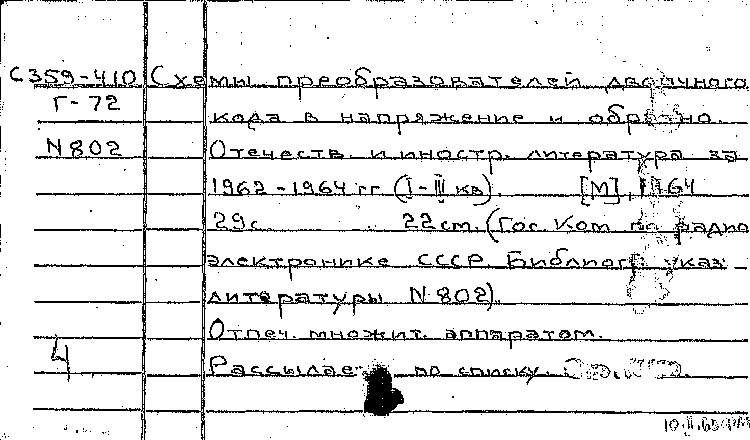 С359-410 Схемы преобразователей двоичного
Г-72 кода в напряжение и обратно.
N802 Отечеств. и иностр. литература за
1962-1964 гг. (I-III кв). [М], 1964
29с. 22см. (Гос. Ком. по радио
электронике СССР. Библиогр. указ.
литературы N 802).
Отпеч. множит. аппаратом.
4 Рассылает по списку.
10.II.65